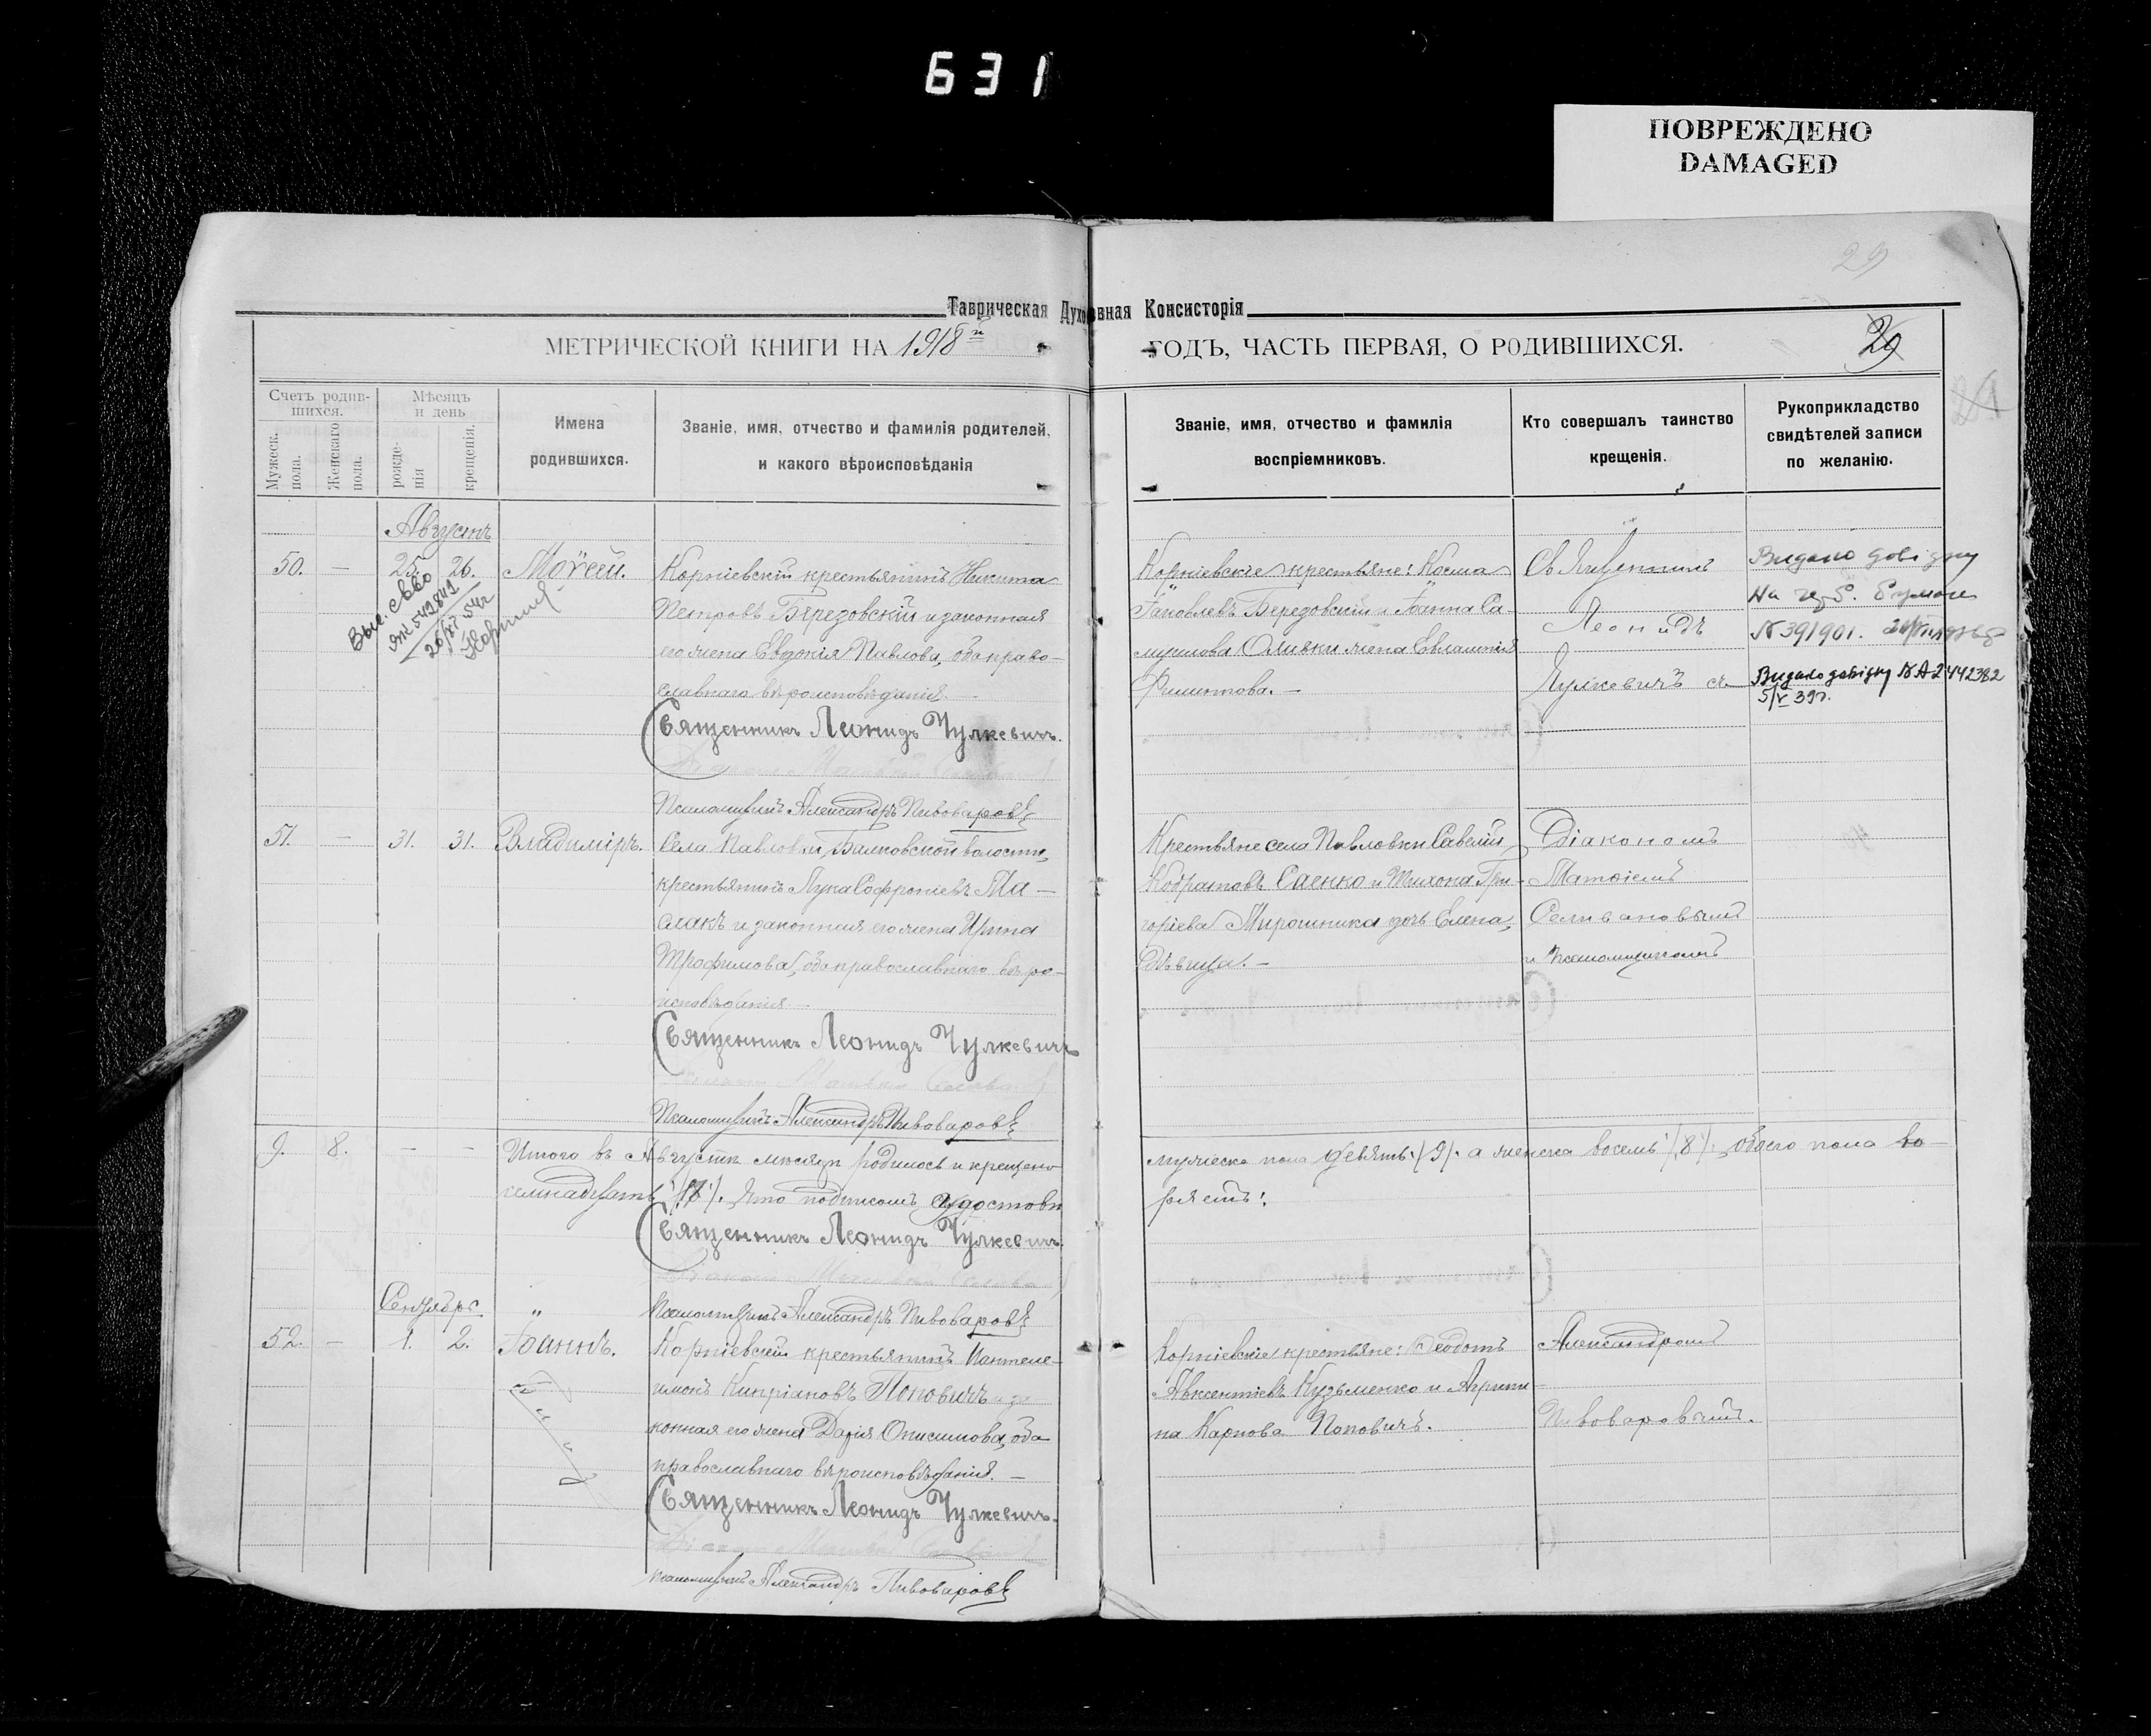 631
ПОВРЕЖДЕНО
DAMAGED
29
Таврическая Духовная Консисторія
МЕТРИЧЕСКОЙ КНИГИ НА 1918й ГОДЪ, ЧАСТЬ ПЕРВАЯ, О РОДИВШИХСЯ.
29
Счетъ родив-
шихся.
Мужеск. пола.
Женскаго пола.
Мѣсяцъ
и день
рожде-
нія
крещенія.
Имена
родившихся.
Званіе, имя, отчество и фамилія родителей,
и какого вѣроисповѣданія
Званіе, имя, отчество и фамилія
воспріемниковъ.
Кто совершалъ таинство
крещенія.
Рукоприкладство
свидѣтелей записи
по желанію.
Августъ
50. — 25. 26. Моѵсей.
Выс. св-во
549849
26/XI 54г
Корніевскій крестьянинъ Никита
Петровъ Березовскій и законная
его жена Евдокія Павлова, оба право-
славнаго вѣроисповѣданія. —
Священникъ Леонидъ Чулкевичъ.
Псаломщикъ Александръ Пивоваровъ
Корніевскіе крестьяне: Косма
Іаковлевъ Березовскій и Іоанна Са-
муилова Оливки жена Евлампія
Филиппова. —
Священникъ
Леонидъ
Чулкевичъ съ
Видано довідку
На
№ 391901.
Видано довідку № А 2442382
5/V 39г.
51. — 31. 31. Владиміръ.
Села Павловки, Балковской волости,
крестьянинъ Лука Софроніевъ Ма-
слакъ и законная его жена Ирина
Трофимова, оба православнаго вѣро-
исповѣданія. —
Священникъ Леонидъ Чулкевичъ
Псаломщикъ Александръ Пивоваровъ
Крестьяне села Павловки Савелій
Кодратовъ Саенко и Тихона Гри-
горіева Мирошника дочь Елена,
дѣвица. —
Діакономъ
Матѳіемъ
Селивановымъ
и Псаломщикомъ
9. 8. — — Итого въ Августѣ мѣсяцѣ родилось и крещено мужеска пола девять /9/. а женска восемь /8/., обоего пола
семнадцать /17/. Что подписомъ удостовѣ
ряемъ:
Священникъ Леонидъ Чулкевичъ.
Псаломщикъ Александръ Пивоваровъ
Сентябрь „
52. — 1. 2. Іоаннъ.
Корніевскій крестьянинъ Пантеле-
имонъ Кипріановъ Поповичъ и за
конная его жена Дарія Онисимова, оба
православнаго вѣроисповѣданія. —
Священникъ Леонидъ Чулкевичъ.
Псаломщикъ Александръ Пивоваровъ
Корніевскіе крестьяне: Ѳеодотъ
Авксентіевъ Кузьменко и Агрипи-
на Карпова Поповичъ.
Александромъ
Пивоваровымъ.